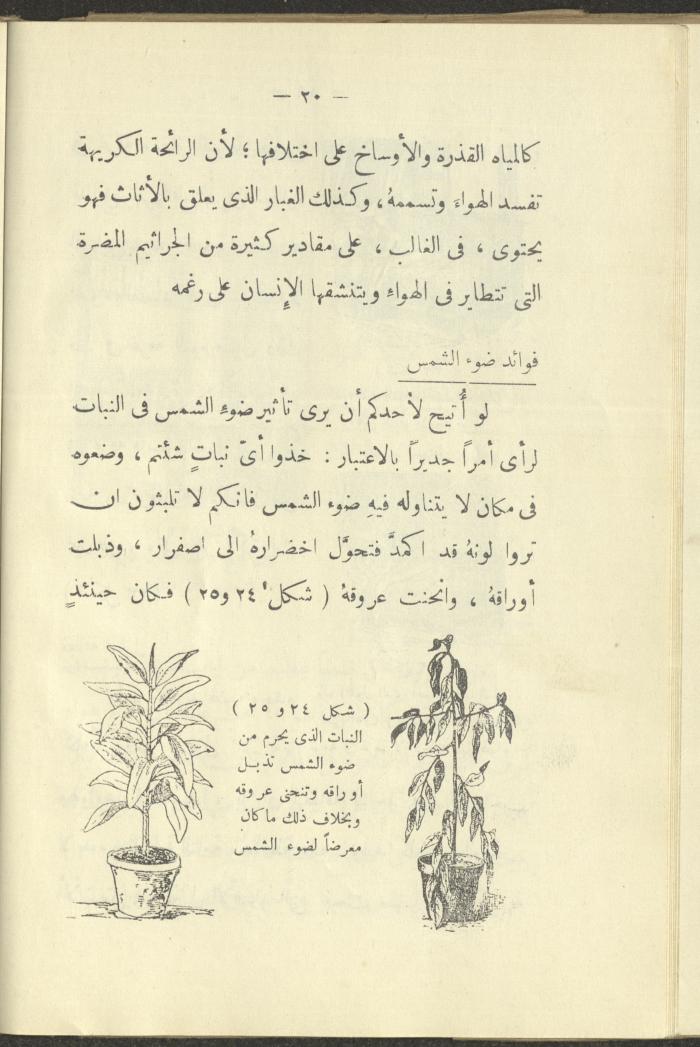 — ٢٠ —
كالمياه القذرة والأوساخ على اختلافها ؛ لأن الرائحة الكريهة
تفسد الهواءَ وتسممهُ ، وكذلك الغبار الذى يعلق بالأثاث فهو
يحتوى ، فى الغالب ، على مقادير كثيرة من الجراثيم المضرة
التى تتطاير فى الهواءِ ويتنشقها الإِنسان على رغمه
فوائد ضوء الشمس
لو أُتيح لأحدكم أن يرى تأثير ضوءِ الشمس فى النبات
لرأى أمراً جديراً بالاعتبار : خذوا أىّ نباتٍ شئتم ، وضعوه
فى مكان لا يتناوله فيهِ ضوء الشمس فانكم لا تلبثون ان
تروا لونهُ قد اكمدَّ فتحوَّل اخضرارهُ الى اصفرار ، وذبلت
أوراقهُ ، وانحنت عروقهُ ( شكل ٢٤ و٢٥ ) فكان حينئذٍ
( شكل ٢٤ و ٢٥ )
النبات الذى يحرم من
ضوء الشمس تذبل
أوراقه وتنحنى عروقه
وبخلاف ذلك ما كان
معرضاً لضوء الشمس